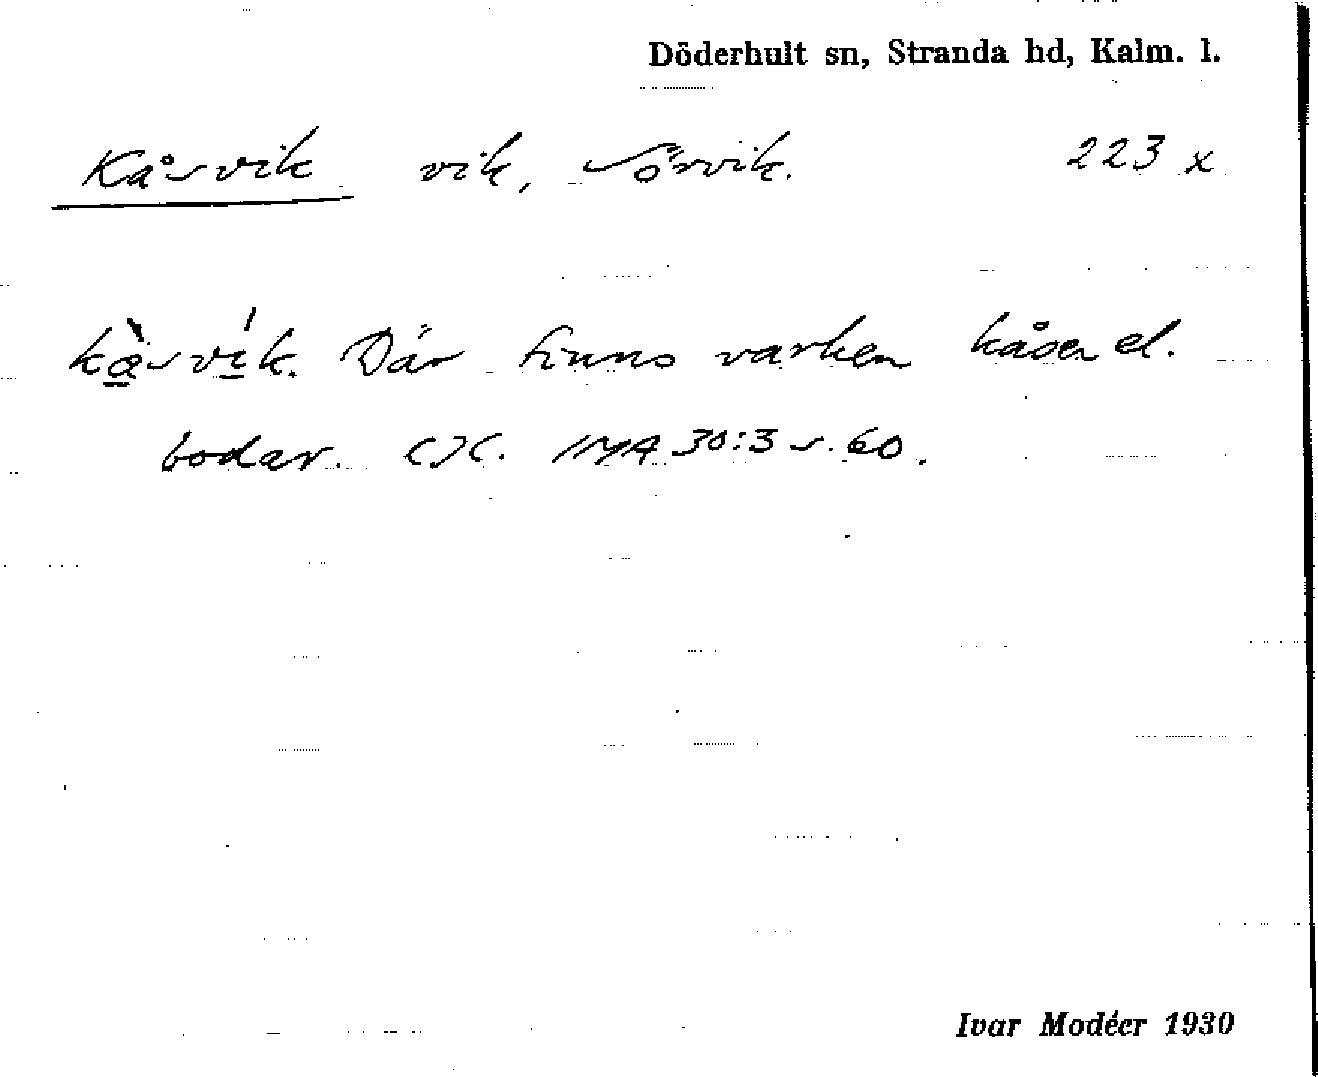 Döderhult sn, Stranda hd, Kalm. l.
Kåsvik vik, Sörvik. 223 x
kå̀svík. Där finns varken kåsen el.
bodar. CJC. IMA 30:3 s. 60.
Ivar Modéer 1930